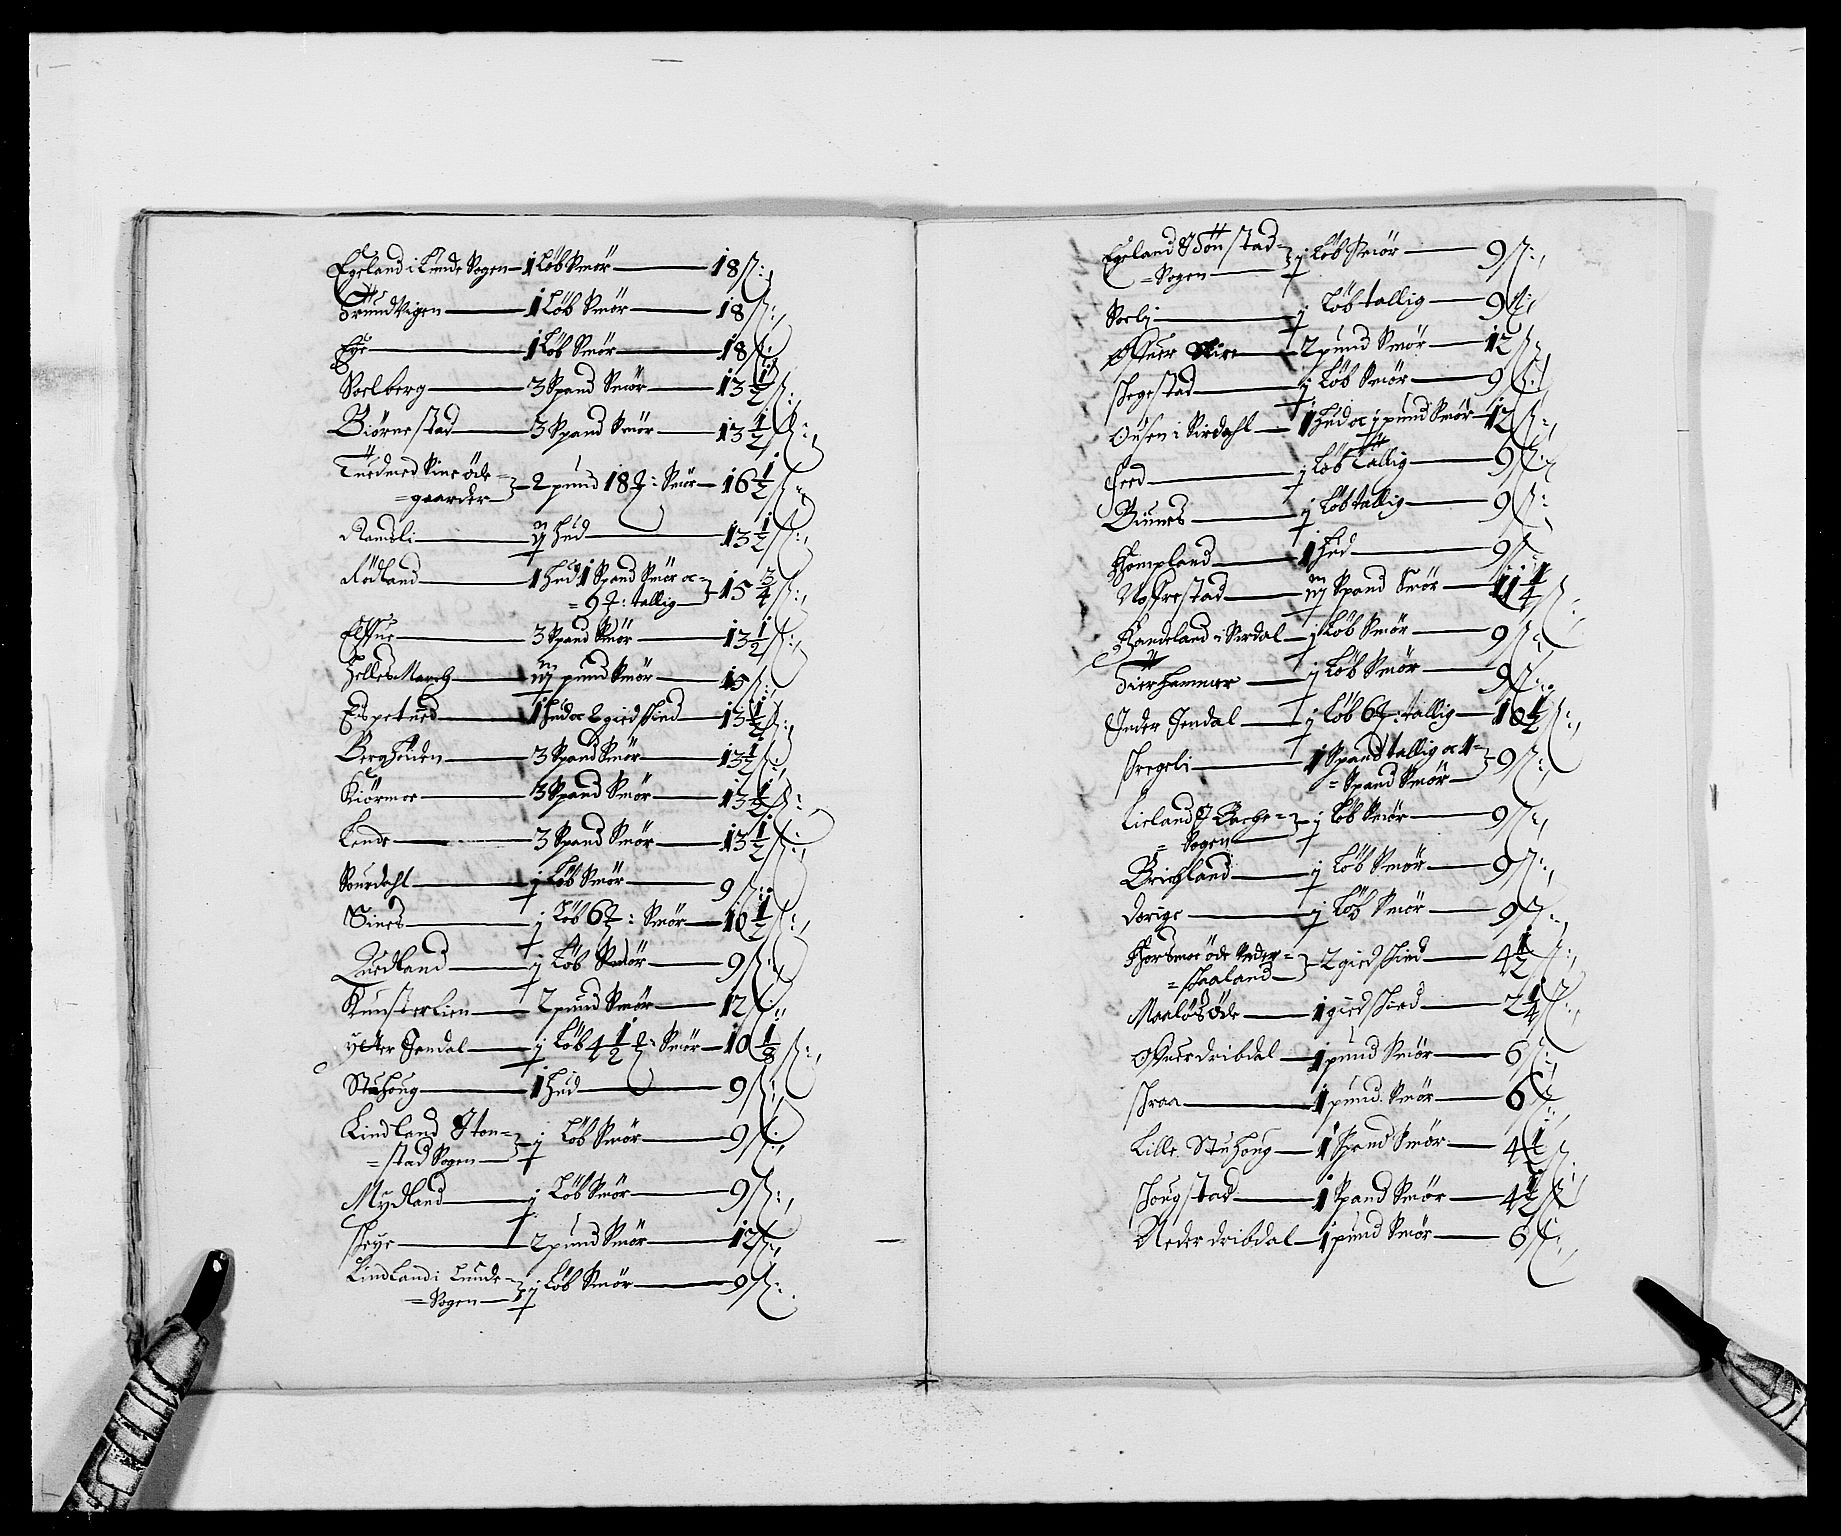 Egeland i Lunde Sogen 1 Løb Smør 18 ß:
Drundvigen 1 Løb Smør 18 ß:
Eye 1 Løb Smør 18 ß:
Soelberg 3 Spand Smør 13 1/2 ß:
Biørnestad 3 Spand Smør 13 1/2 ß:
Tuedmed Sine øde=
=gaarder 2 pund 18 : Smør 16 1/2 ß:
Ramsli hud 13 1/2 ß:
Rødland 1 hud 1 Spand Smør oc=
=9 : tallig 15 3/4 ß:
3 Spand Smør 13 1/2 ß:
pund Smør 15 ß:
Espetued 1 hud oc 2 giedskind 13 1/2 ß:
Berghøuden 3 Spand Smør 13 1/2 ß:
Kiørmoe 3 Spand Smør 13 1/2 ß:
Lende 3 Spand Smør 13 1/2 ß:
Sourdahl j Løb Smør 9 ß:
Sines j Løb 6 : Smør 10 1/2 ß:
Quedland j Løb Smør 9 ß:
Kunsterlien 2 pund Smør 12 ß:
ytter Jendal j Løb 4 1/2 : Smør 10 1/8 ß:
Stuhoug 1 hud 9 ß:
Lindland J ton=
=stad Sogen j Løb Smør 9 ß:
Mydland j Løb Smør 9 ß:
Skeye 2 pund Smør 12 ß:
Lindland i Lunde=
=Sogen j Løb Smør 9 ß:
Egeland J Tonstad=
=Sogen j Løb Smør 9 ß:
Soeli j Løb tallig 9 ß:
Ofuer 2 pund Smør 12 ß:
Skegestad j Løb Smør 9 ß:
Ousen i Sirdahl 1 hud oc j pund Smør 12 ß:
Feed j Løb Tallig 9 ß:
Biunes j Løb tallig 9 ß:
Hompland 1 hud 9 ß:
Spand Smør 11 1/4 ß:
Haneland i Sirdal j Løb Smør 9 ß:
Dierhammer j Løb Smør 9 ß:
Inder Jendal j Løb 6 : tallig 10 1/2 ß:
Skregeli 1 Spand tallig oc 1=
=Spand Smør 9 ß:
Lieland J Bache=
=Sogen j Løb Smør 9 ß:
Brichland j Løb Smør 9 ß:
Dorige j Løb Smør 9 ß:
Horsmoe øde Under=
=skaaland 2 giedskind 4 1/2 ß:
Maaløs øde 1 giedskind 2 1/4 ß:
Ofuer dribdal 1 pund Smør 6 ß:
Skraa 1 pund Smør 6 ß:
Lille Stuhoug 1 Spand Smør 4 1/2 ß:
Skougstad 1 Spand Smør 4 1/2 ß:
Neder dribdal 1 pund Smør 6 ß: